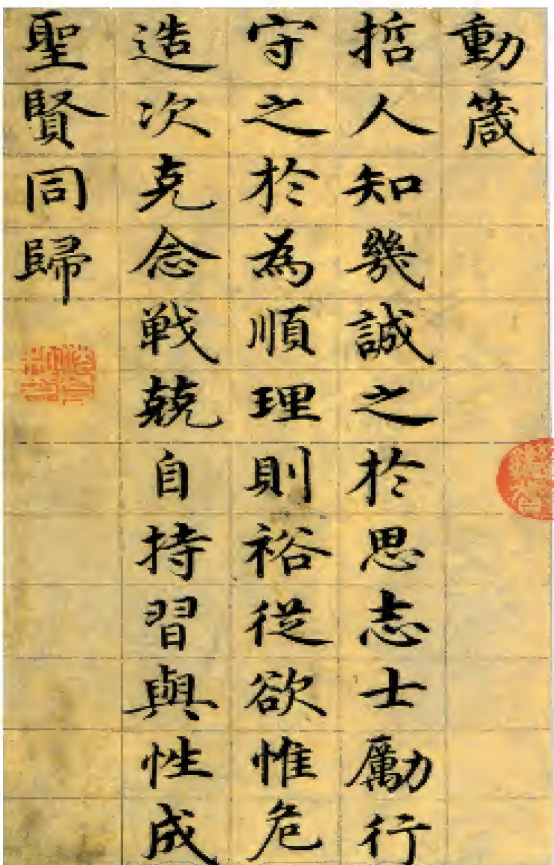 動箴
哲人知幾誠之於思志士勵行
守之於為順理則裕從欲惟危
造次克念戰兢自持習與性成
聖賢同歸